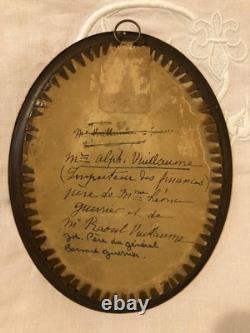 Mr Alph. Vuillaume
(Inspecteur des finances)
père de Mme Léonie
Guerrier et de
Mr Raoul Vuillaume
gd. Père du général
Bernard Guerrier.
ebay